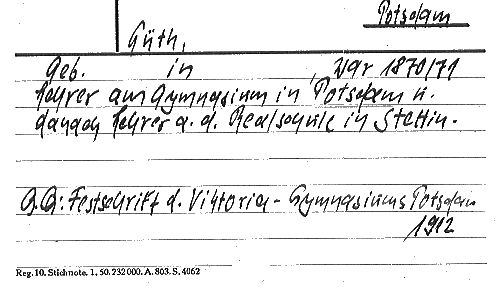 Potsdam
Güth,
Geb. in , war 1870/71
Lehrer am Gymnasium in Potsdam u.
danach Lehrer a. d. Realschule in Stettin.
Q.Q: Festschrift d. Viktoria-Gymnasiums Potsdam
1912
Reg. 10. Stichnote. 1. 50. 232 000. A. 803. S. 4062